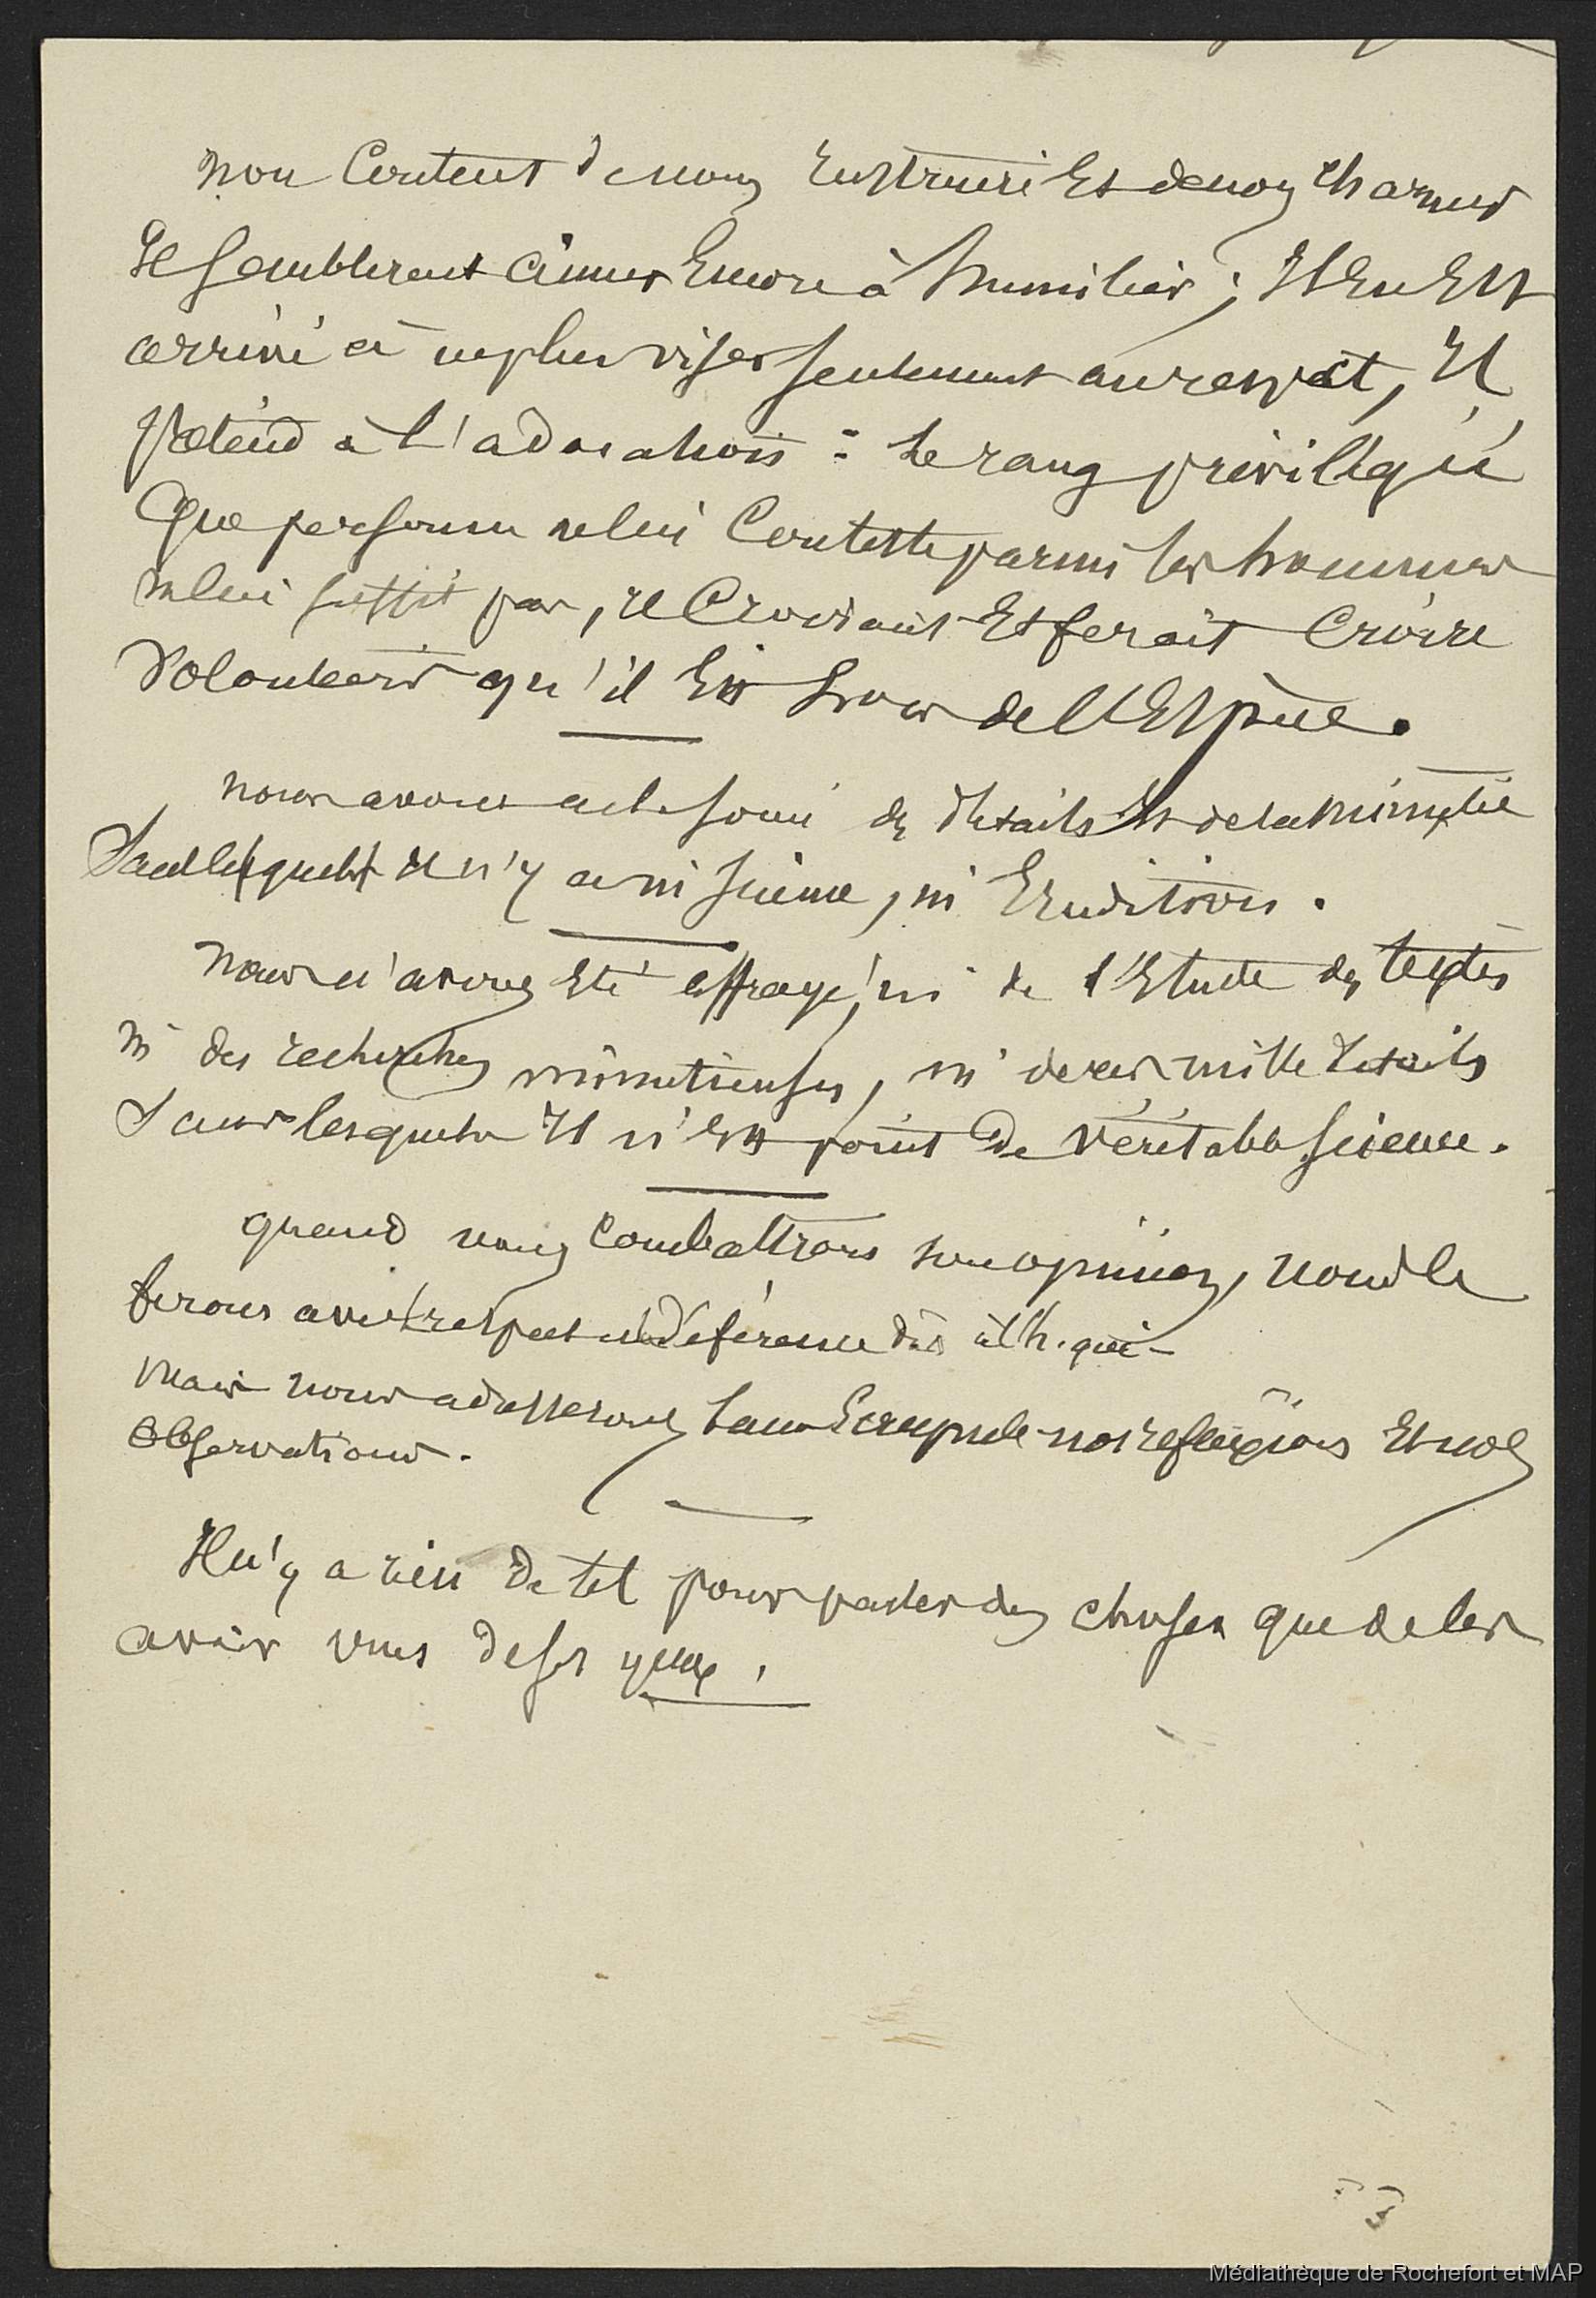 non content de nous instruire et de nous charmer
Il semblerait aimer encore à humilier ; Il en est
arrivé à ne plus viser seulement au respect, Il
prétend à l'adoration : le rang privilégié
que personne ne lui conteste parmi les hommes
ne lui suffit pas, il croirait et ferait croire
volontiers qu'il est hors de l'Espèce.
nous avons eu le souci des détails et de la minutie
sans lesquels il n'y a ni science, ni Erudition.
nous n'avons été effrayé, ni de l'Etude des textes
ni des recherches minutieuses, ni de ces mille détails
sans lesquels Il n'est point de véritable science.
quand nous combattrons son opinion, nous le
ferons avec respect et déférence dûs à l'h. qui -
mais nous adresserons sans scrupule nos réflexions et nos
observations.
Il n'y a rien de tel pour parler des choses que de les
avoir vues de ses yeux.
Médiathèque de Rochefort et MAP